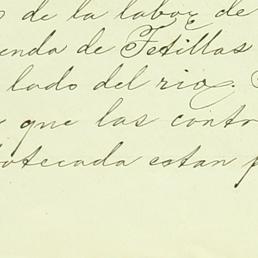 de la labor de
enda de Fetillas
lado del rio.
que las contr
otecada estan p